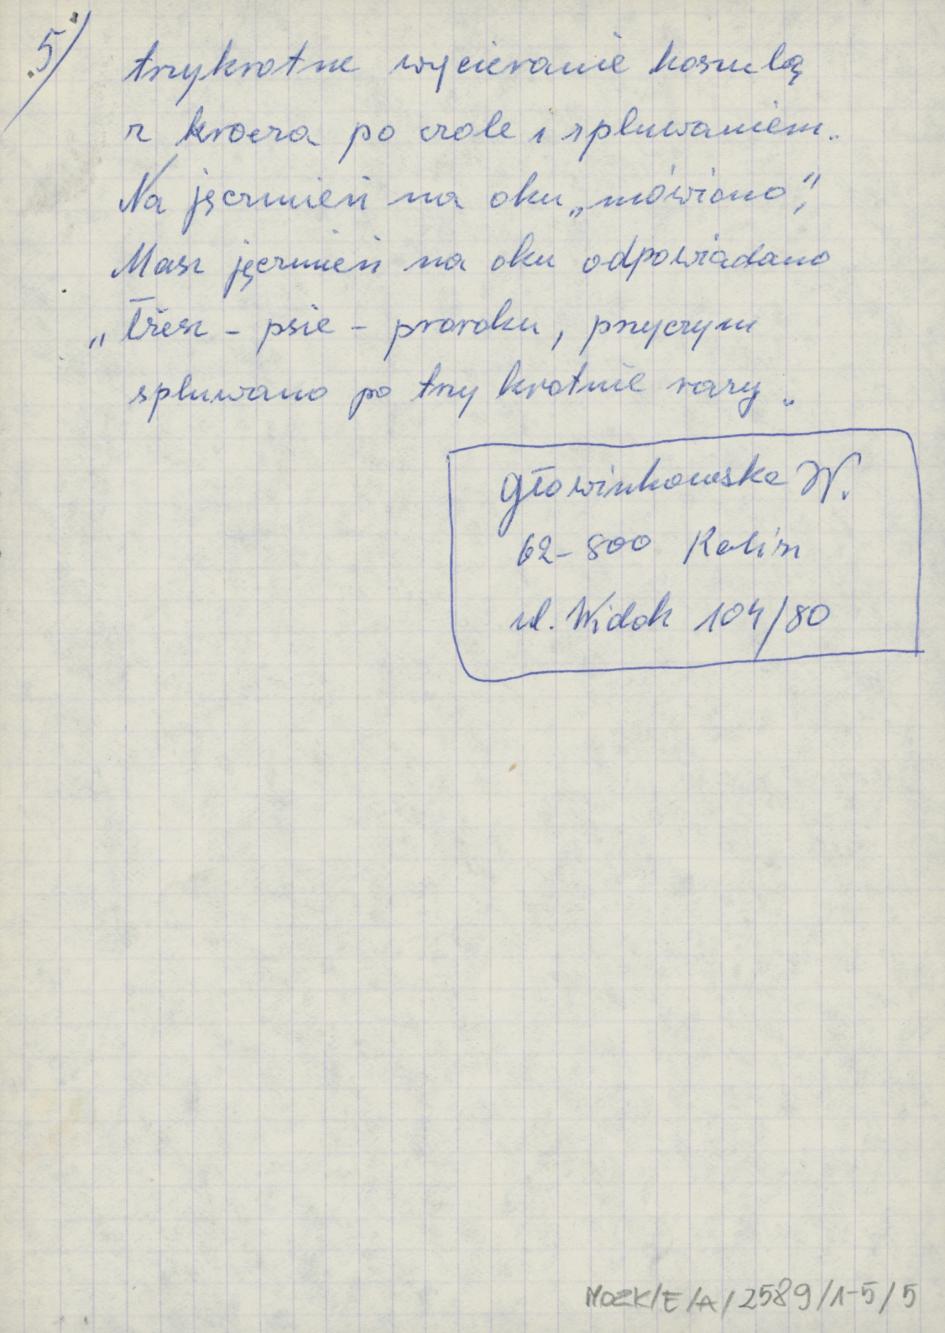 5/
trzykrotne wycieranie koszulą
z krocza po czole i spluwaniem.
Na jęczmień na oku „mówiono",
Masz jęczmień na oku odpowiadano
„Łżesz – psie – proroku, przyczym
spluwano po trzy krotnie razy.
Głowinkowska W.
62-800 Kalisz
ul. Widok 104/80
MOZK/E/A/2589/1-5/5